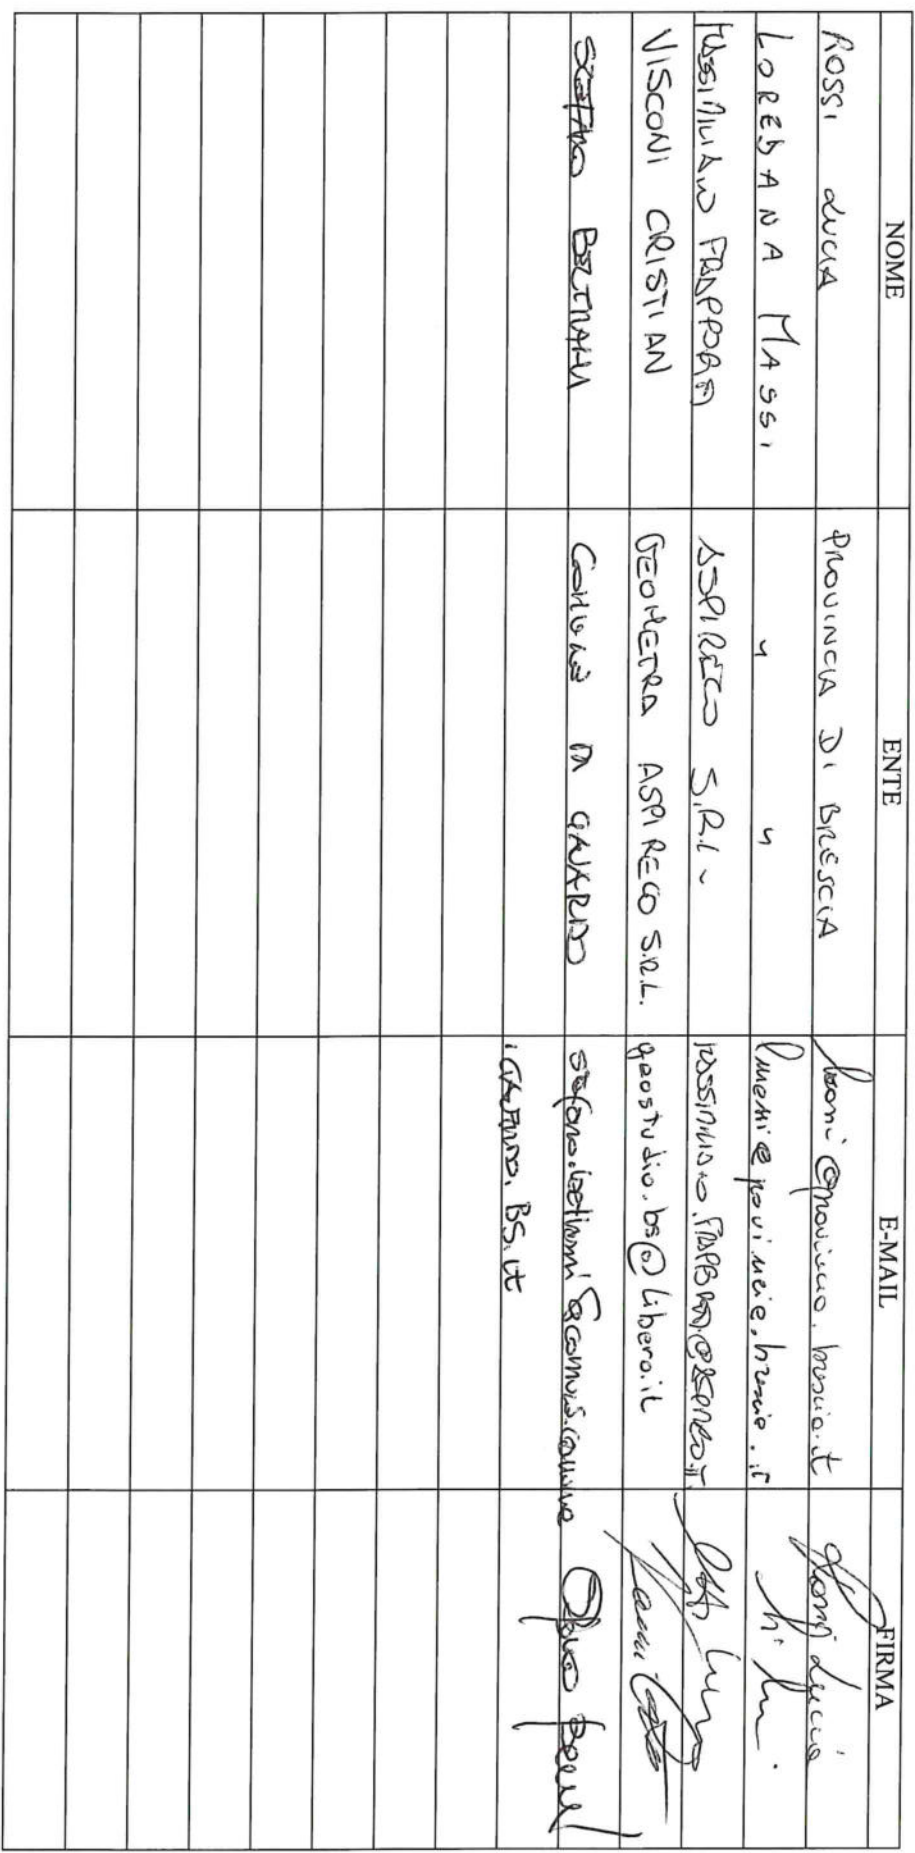 NOME ENTE E-MAIL FIRMA
ROSSI LUCIA PROVINCIA DI BRESCIA lrossi@provincia.brescia.it Rossi Lucia
LOREDANA MASSI " " lmassi@provincia.brescia.it
MASSIMILIANO FRAPPORTI ASPIRECO S.R.L.
VISCONI CRISTIAN GEOMETRA ASPIRECO S.R.L. geostudio.bs@libero.it
STEFANO BELTRAMI COMUNE DI GAVARDO stefano.beltrami@comune
GAVARDO.BS.it